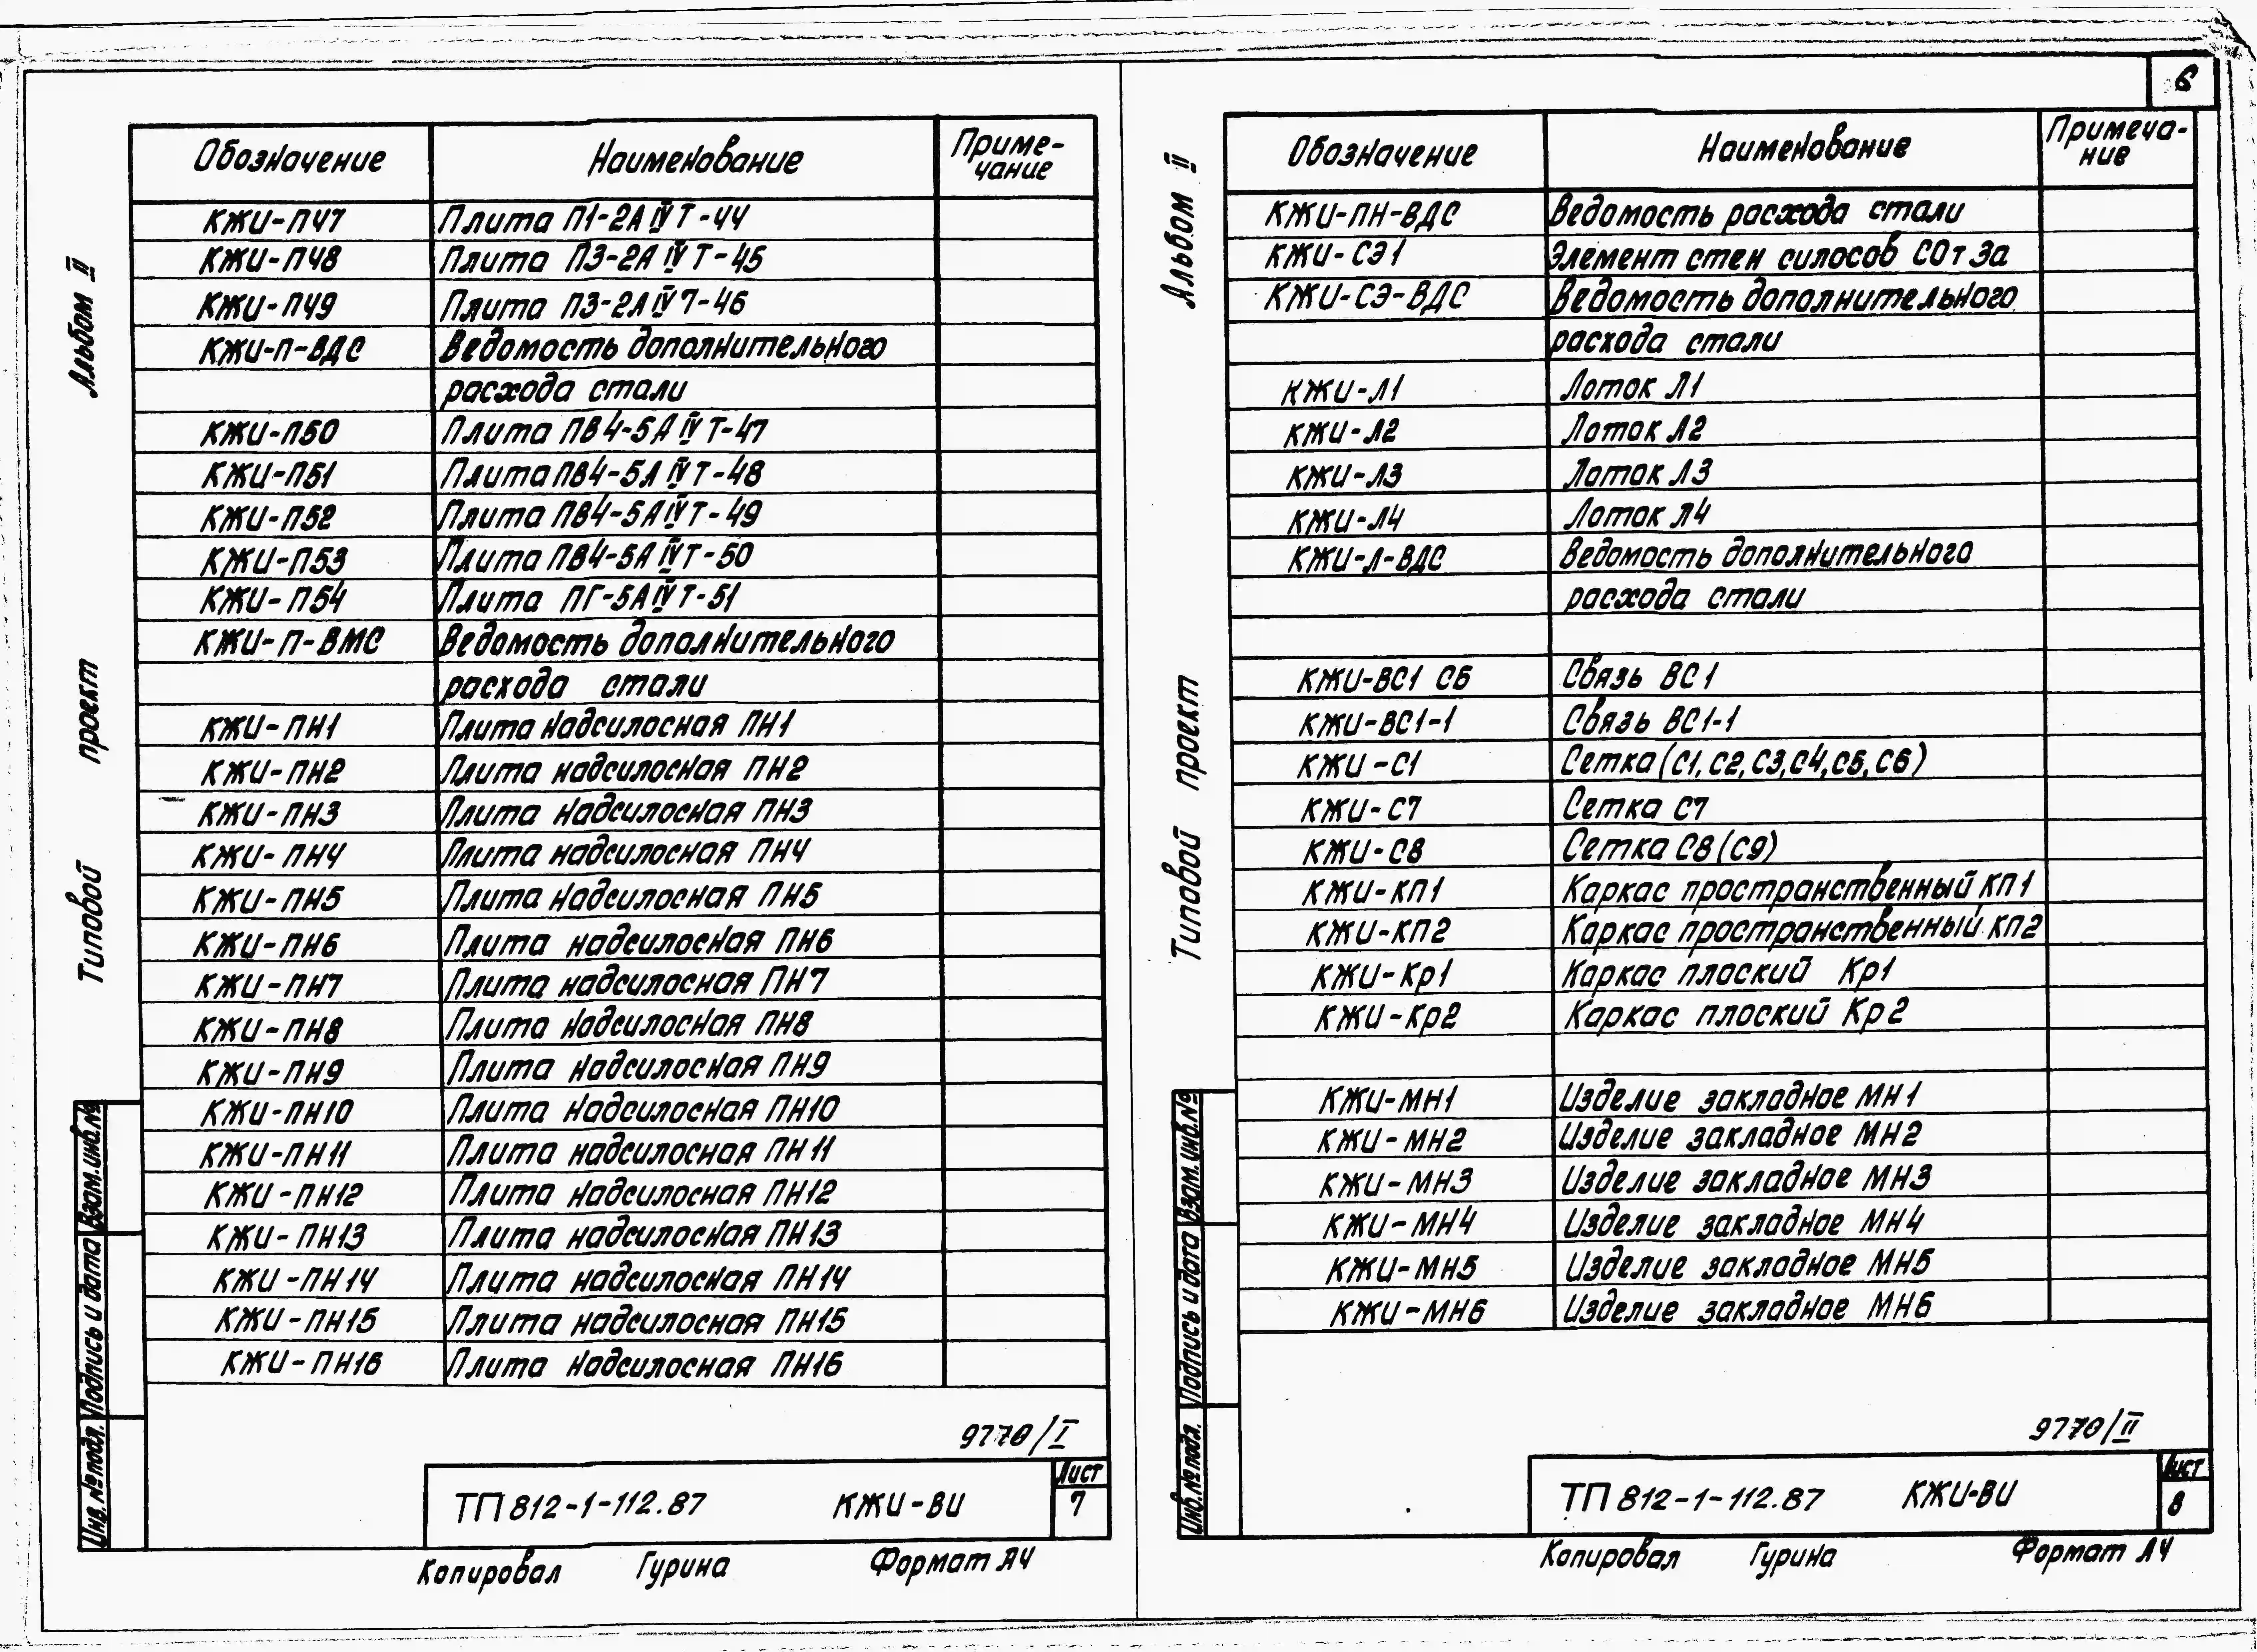 6
Альбом II
Типовой проект
Обозначение Наименование Приме-
чание
КЖИ-П47 Плита П1-2А IV Т-44
КЖИ-П48 Плита П3-2А IV Т-45
КЖИ-П49 Плита П3-2А IV Т-46
КЖИ-П-ВДС Ведомость дополнительного
расхода стали
КЖИ-П50 Плита ПВ4-5А IV Т-47
КЖИ-П51 Плита ПВ4-5А IV Т-48
КЖИ-П52 Плита ПВ4-5А IV Т-49
КЖИ-П53 Плита ПВ4-5А IV Т-50
КЖИ-П54 Плита ПГ-5А IV Т-51
КЖИ-П-ВМС Ведомость дополнительного
расхода стали
КЖИ-ПН1 Плита надсилосная ПН1
КЖИ-ПН2 Плита надсилосная ПН2
КЖИ-ПН3 Плита надсилосная ПН3
КЖИ-ПН4 Плита надсилосная ПН4
КЖИ-ПН5 Плита надсилосная ПН5
КЖИ-ПН6 Плита надсилосная ПН6
КЖИ-ПН7 Плита надсилосная ПН7
КЖИ-ПН8 Плита надсилосная ПН8
КЖИ-ПН9 Плита надсилосная ПН9
КЖИ-ПН10 Плита надсилосная ПН10
КЖИ-ПН11 Плита надсилосная ПН11
КЖИ-ПН12 Плита надсилосная ПН12
КЖИ-ПН13 Плита надсилосная ПН13
КЖИ-ПН14 Плита надсилосная ПН14
КЖИ-ПН15 Плита надсилосная ПН15
КЖИ-ПН16 Плита надсилосная ПН16
Взам.инв.№
Подпись и дата
Инв.№подл.
9770/I
ТП 812-1-112.87 КЖИ-ВИ
Лист
7
Копировал Гурина Формат А4
Альбом II
Типовой проект
Обозначение Наименование Примеча-
ние
КЖИ-ПН-ВДС Ведомость расхода стали
КЖИ-СЭ1 Элемент стен силосов СОт3а
КЖИ-СЭ-ВДС Ведомость дополнительного
расхода стали
КЖИ-Л1 Лоток Л1
КЖИ-Л2 Лоток Л2
КЖИ-Л3 Лоток Л3
КЖИ-Л4 Лоток Л4
КЖИ-Л-ВДС Ведомость дополнительного
расхода стали
КЖИ-ВС1 СБ Связь ВС1
КЖИ-ВС1-1 Связь ВС1-1
КЖИ-С1 Сетка (С1, С2, С3, С4, С5, С6)
КЖИ-С7 Сетка С7
КЖИ-С8 Сетка С8 (С9)
КЖИ-КП1 Каркас пространственный КП1
КЖИ-КП2 Каркас пространственный КП2
КЖИ-Кр1 Каркас плоский Кр1
КЖИ-Кр2 Каркас плоский Кр2
КЖИ-МН1 Изделие закладное МН1
КЖИ-МН2 Изделие закладное МН2
КЖИ-МН3 Изделие закладное МН3
КЖИ-МН4 Изделие закладное МН4
КЖИ-МН5 Изделие закладное МН5
КЖИ-МН6 Изделие закладное МН6
Взам.инв.№
Подпись и дата
Инв.№подл.
9770/II
ТП 812-1-112.87 КЖИ-ВИ
Лист
8
Копировал Гурина Формат А4